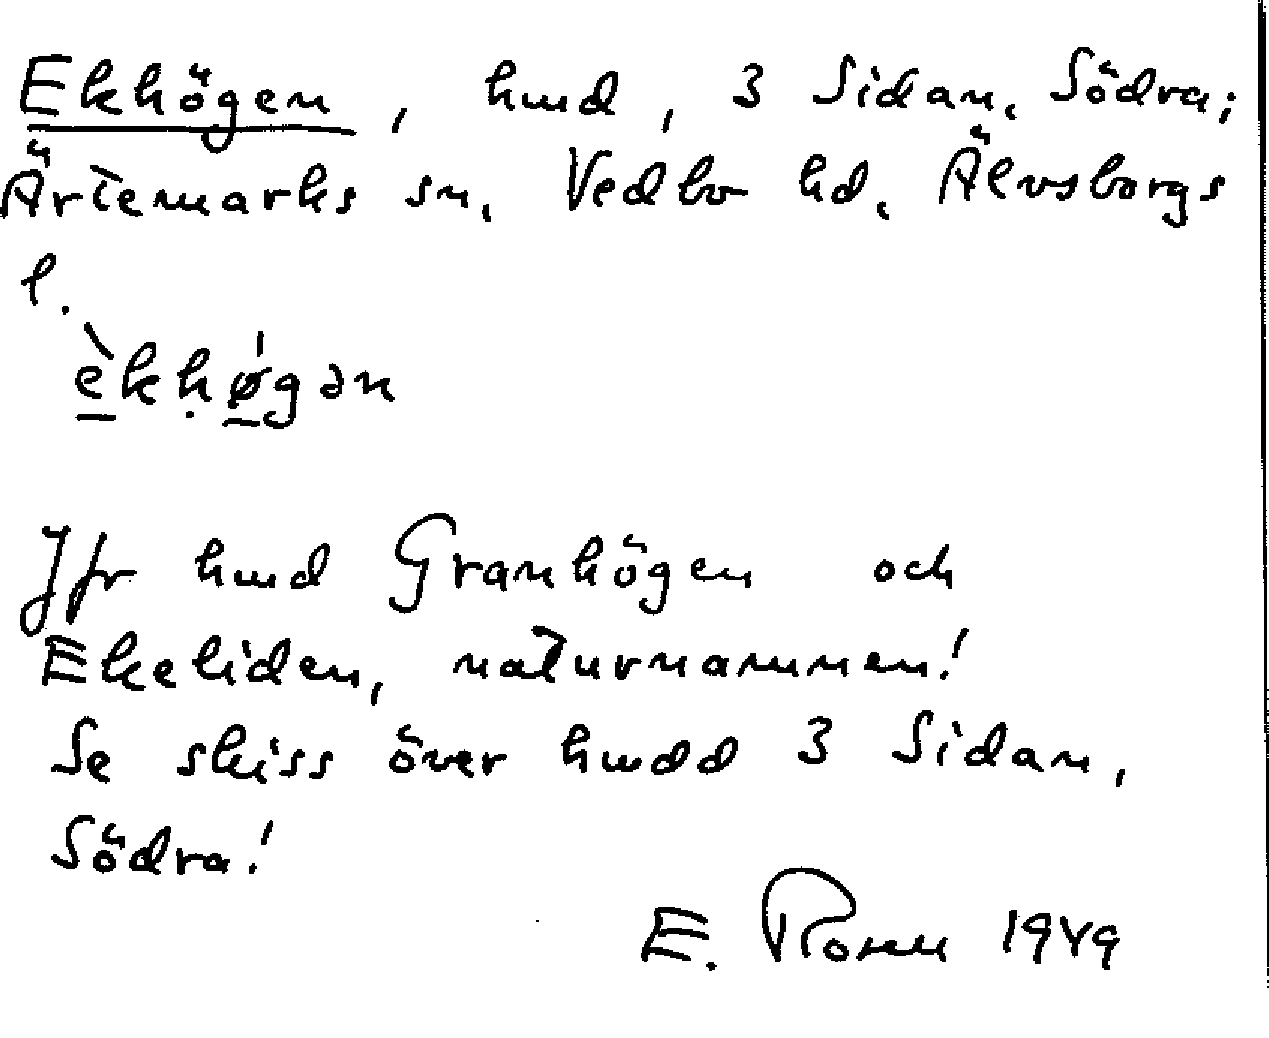 Ekhögen, hmd, 3 Sidan, Södra;
Ärtemarks sn, Vedbo hd, Älvsborgs
l.
è̲kḥǿ̲gən
Jfr hmd Granhögen och
Ekeliden, naturnamnen!
Se skiss över hmdd 3 Sidan,
Södra!
E. 1949